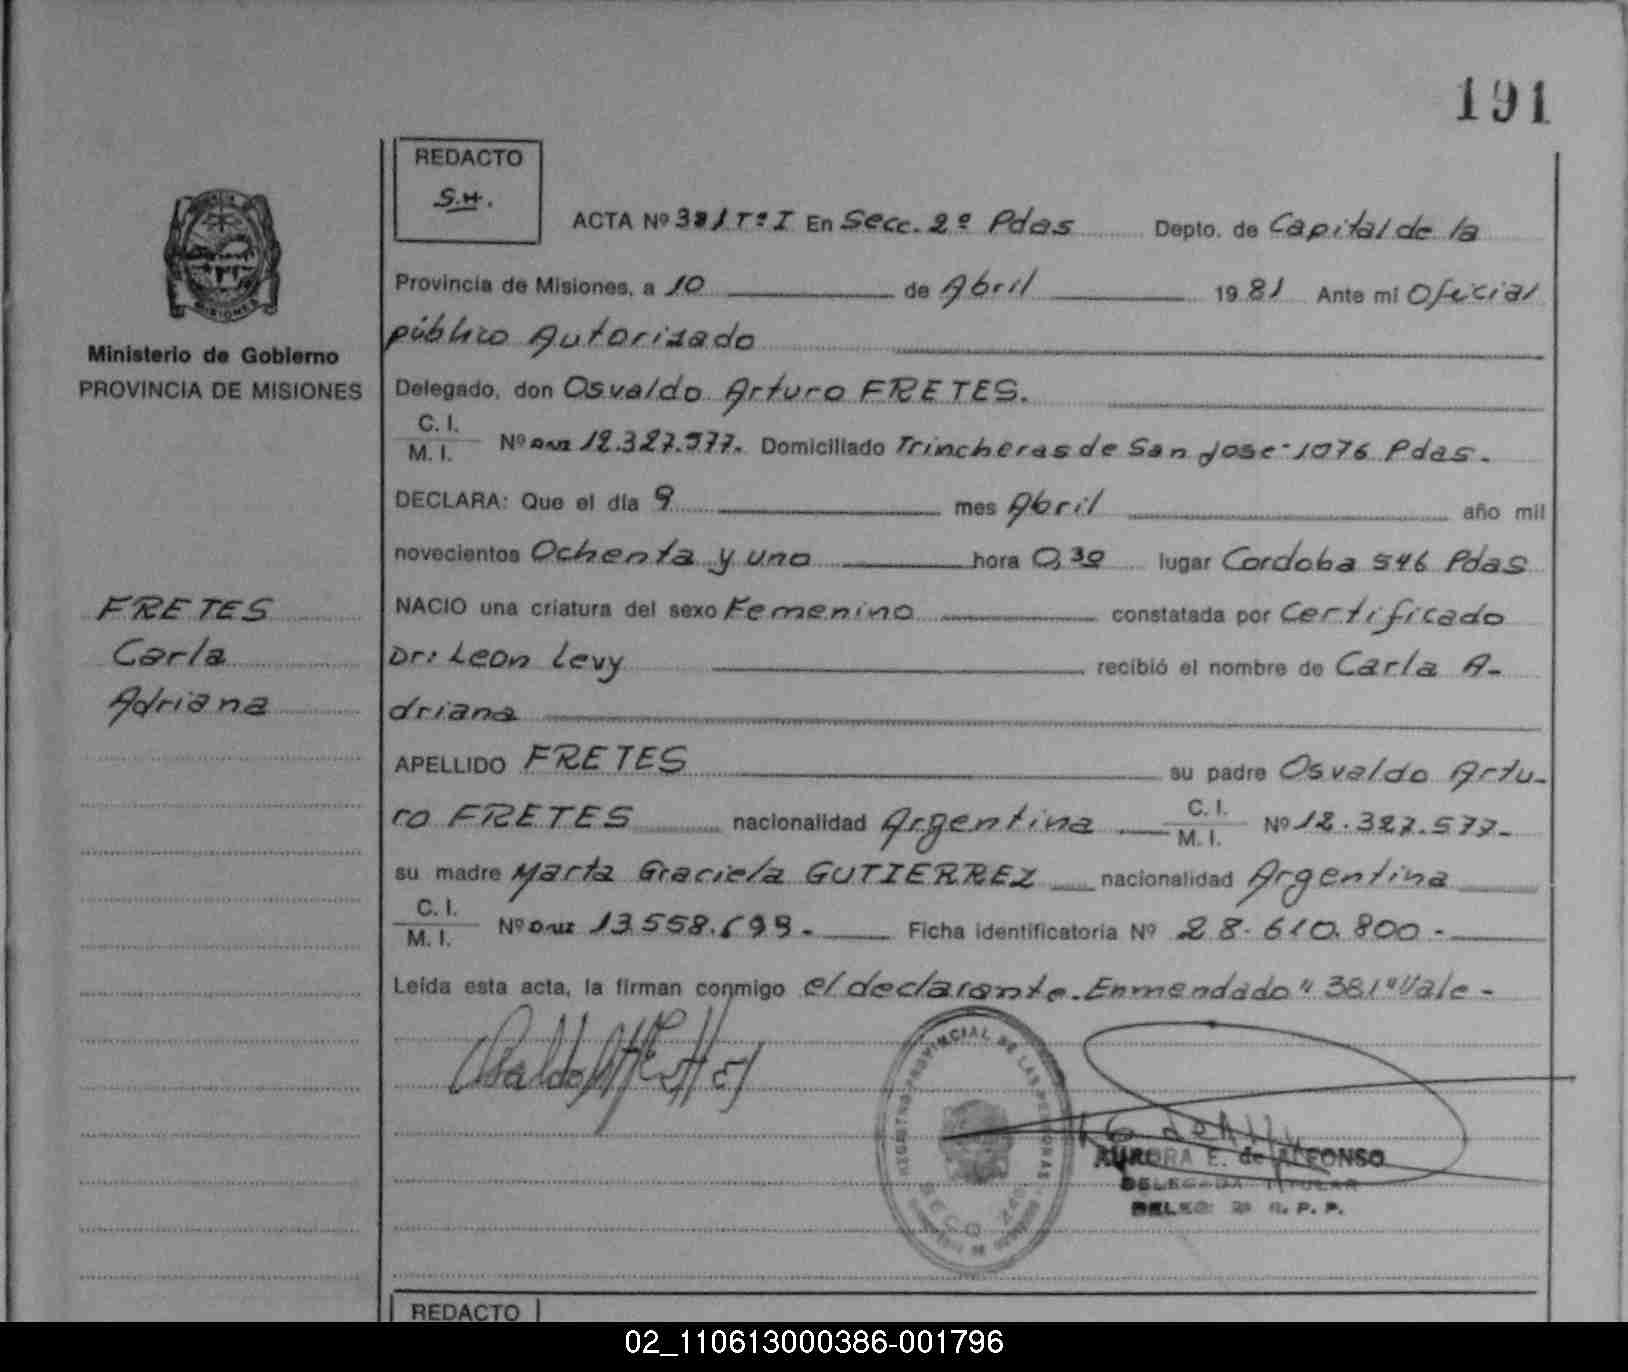 191
REDACTO
S.H.
ACTA Nº 381 Tº I En Secc. 2º Pdas Depto. de Capital de la
Provincia de Misiones, a 10 de Abril 1981 Ante mi Oficial
público Autorizado
Ministerio de Gobierno
PROVINCIA DE MISIONES
Delegado, don Osvaldo Arturo FRETES.
C. I.
M. I. Nº DNI 12.327.577. Domiciliado Trincheras de San Jose-1076 Pdas.
DECLARA: Que el día 9 mes Abril año mil
novecientos Ochenta y uno hora 0,30 lugar Cordoba 546 Pdas
FRETES
Carla
Adriana
NACIO una criatura del sexo Femenino constatada por Certificado
Dr: Leon Levy recibió el nombre de Carla A-
driana
APELLIDO FRETES su padre Osvaldo Artu-
ro FRETES nacionalidad Argentina C. I.
M. I. Nº 12.327.577-
su madre Marta Graciela GUTIERREZ nacionalidad Argentina
C. I.
M. I. Nº DNI 13.558.699.- Ficha identificatoria Nº 28.610.800.-
Leída esta acta, la firman conmigo el declarante. Enmendado "381" Vale-
REGISTRO PROVINCIAL DE LAS PERSONAS
AURORA E. de ALFONSO
DELEGADA TITULAR
DELEG. 2ª R. P. P.
REDACTO
02_110613000386-001796